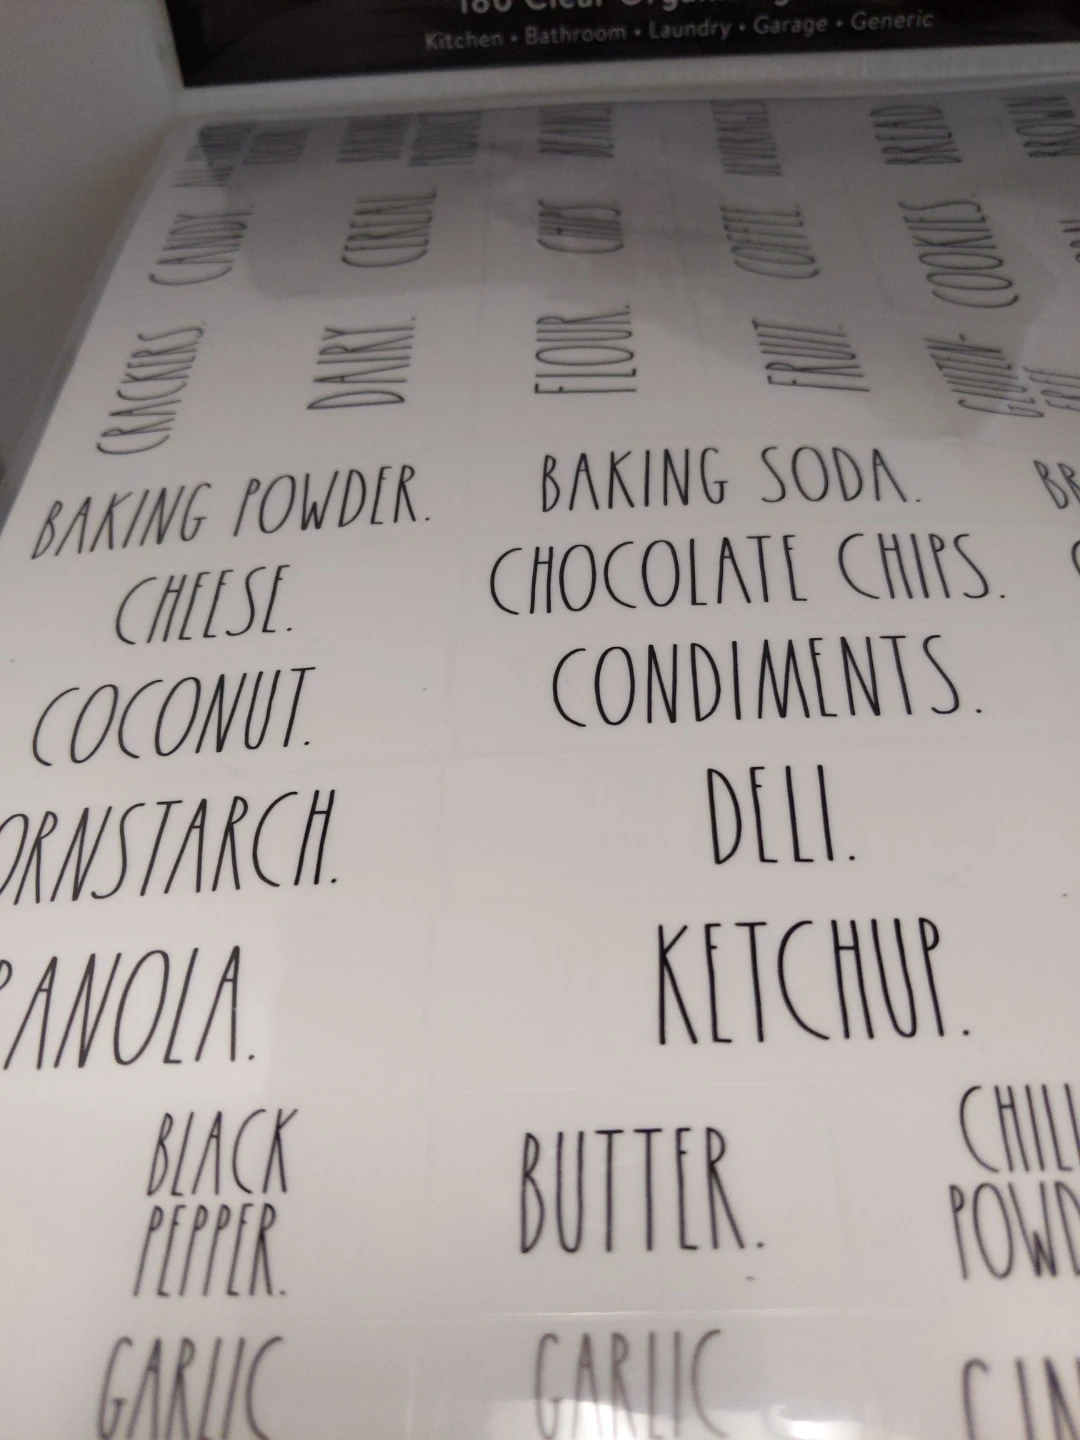 180 Clear
Kitchen • Bathroom • Laundry • Garage • Generic
BEANS
BEVERAGES
BREAD
BROWN
CANDY.
CEREAL.
CHIPS.
COFFEE.
COOKIES.
CRACKERS.
DAIRY.
FLOUR.
FRUIT.
GLUTEN-
BAKING POWDER.
BAKING SODA.
BR
CHEESE.
CHOCOLATE CHIPS.
COCONUT.
CONDIMENTS.
ORNSTARCH.
DELI.
ANOLA.
KETCHUP.
BLACK
PEPPER.
BUTTER.
CHILI
POWD
GARLIC
GARLIC
CIN